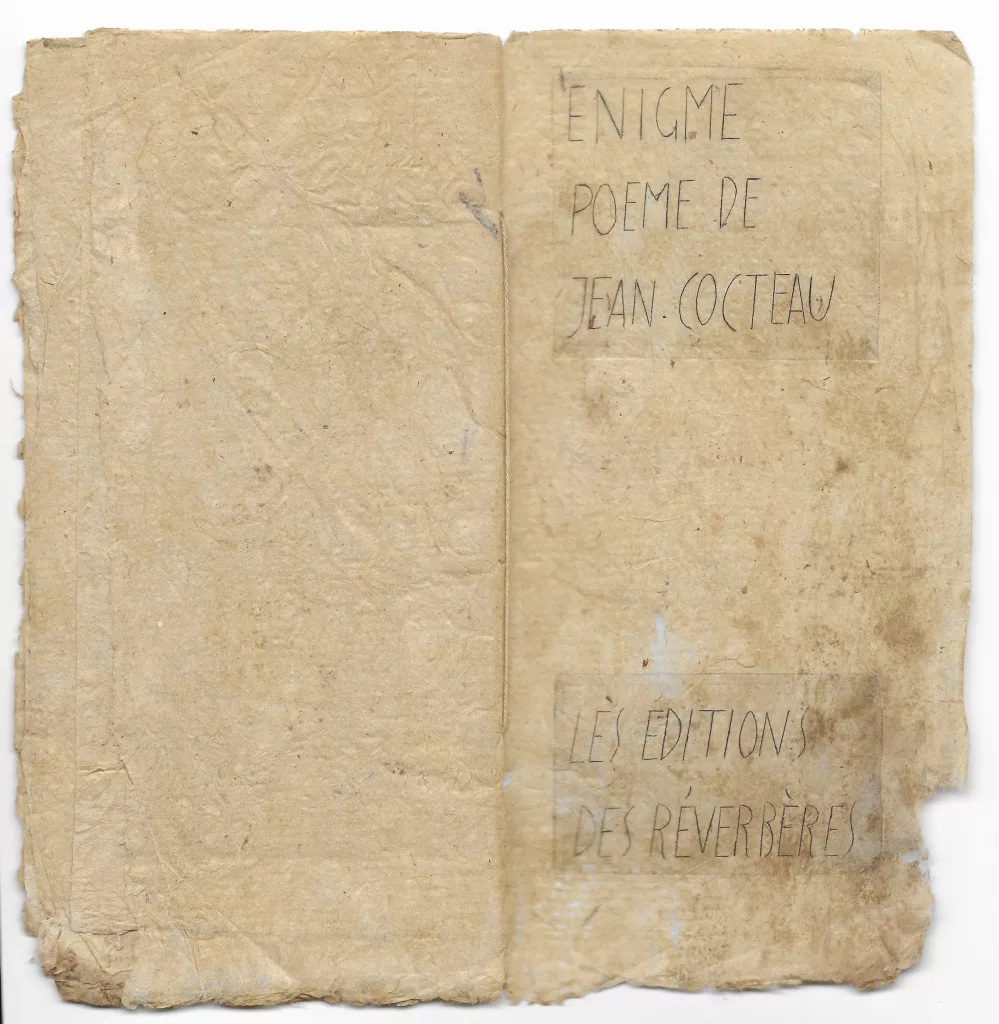 ENIGME
POEME DE
JEAN.COCTEAU
LES ÉDITIONS
DES RÉVERBÈRES